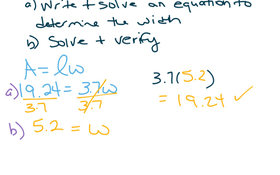 a) Write + solve an equation to
determine the width
b) Solve + verify
A = lw
a) 19.24 = 3.7w
3.7 3.7
b) 5.2 = w
3.7(5.2)
= 19.24 ✓